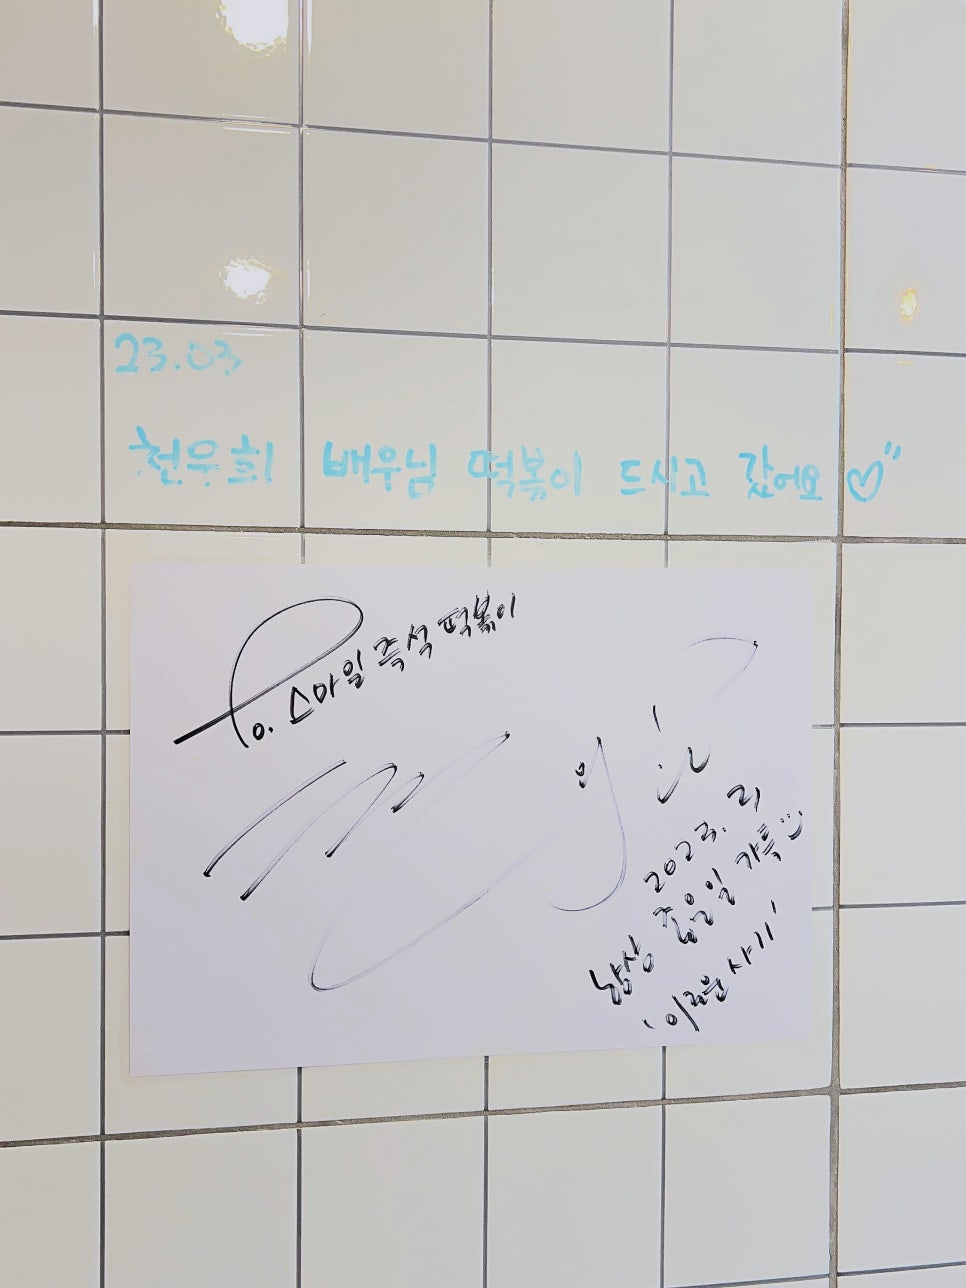 23.03
천우희 배우님 떡볶이 드시고 갔어요♡"
To. 스마일 즉석 떡볶이
2023. 
항상 좋은일 가득
'이로운 사기'